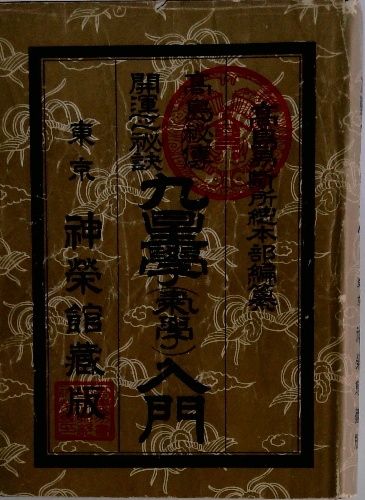 高島易斷所總本部編纂
高島秘傳
開運之秘訣
九星學(氣學)入門
東京 神榮館藏版